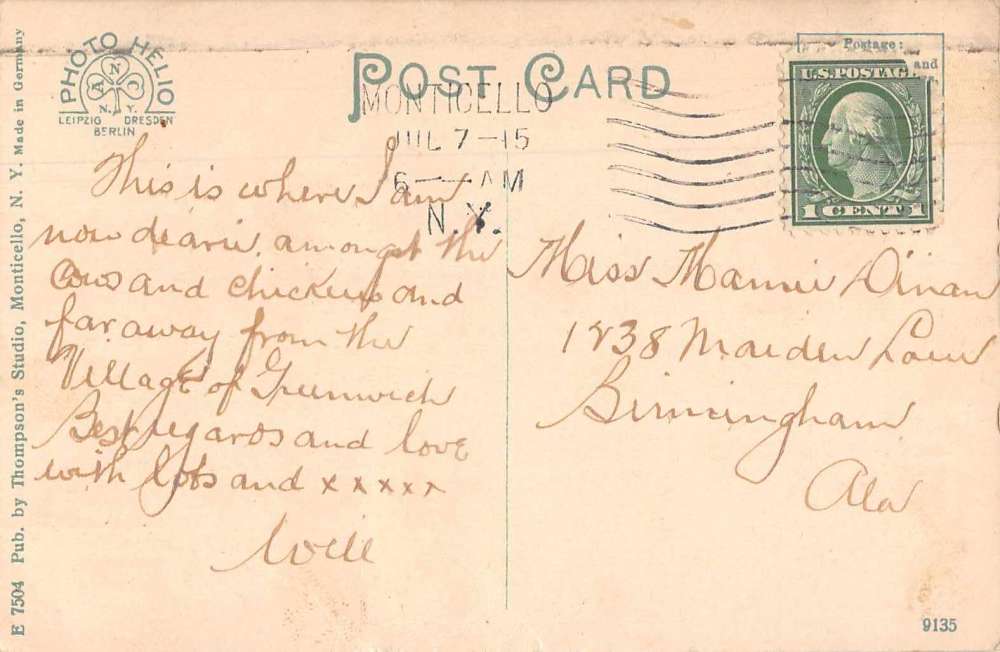 PHOTO HELIO
A N C
N. Y.
LEIPZIG DRESDEN
BERLIN
POST CARD
MONTICELLO
JUL 7-15
6-AM
N.Y.
Postage:
and
U.S. POSTAG
1 CENT 1
This is where I am
now dearie, amongst the
Cows and chickens and
far away from the
Village of Greenwich
Best regards and love
with lots and x x x x x
Will
Miss Mamie Dinan
1238 Maiden Lane
Birmingham
Ala
E 7504 Pub. by Thompson's Studio, Monticello, N. Y. Made in Germany
9135